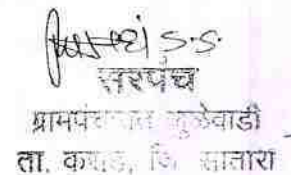 S.S.
सरपंच
ग्रामपंचायत
ता. कराड, जि. सातारा